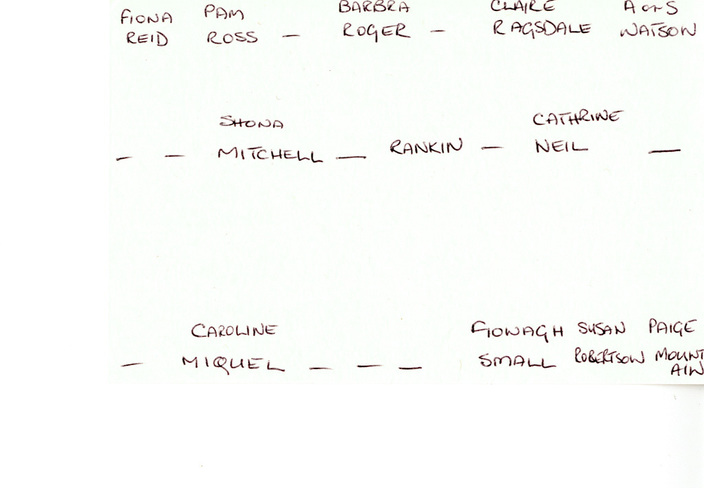 FIONA PAM BARBRA CLAIRE
REID ROSS — ROGER — RAGSDALE WATSON
SHONA CATHRINE
— — MITCHELL — RANKIN — NEIL —
CAROLINE FIONAGH SUSAN PAIGE
— MIQUEL — — — SMALL ROBERTSON MOUNT
AIN